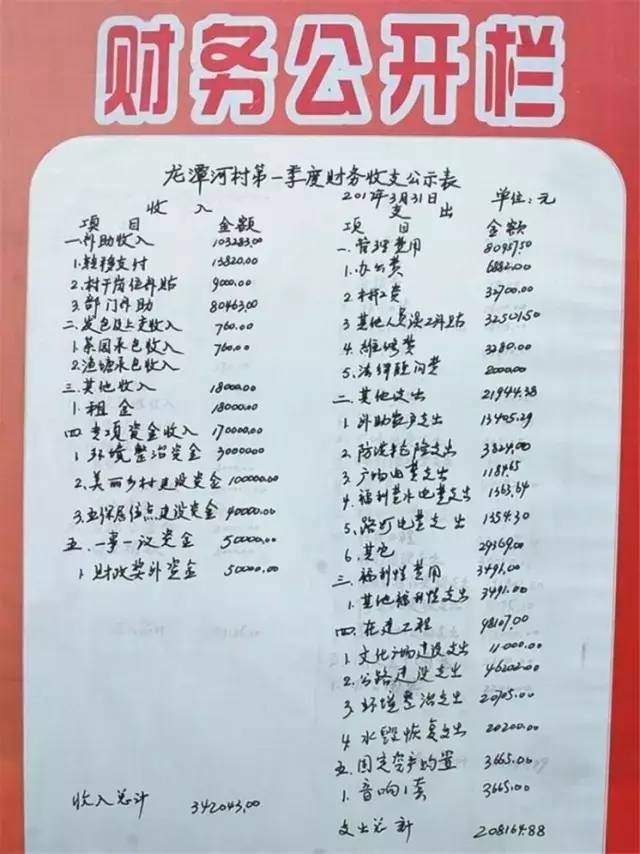 财务公开栏
龙潭河村第一季度财务收支公示表
2017年3月31日 单位:元
收入
项目 金额
一.补助收入 103283.00
1.转移支付 13820.00
2.村干岗位补贴 9000.00
3.部门补助 80463.00
二.发包及上交收入 760.00
1.茶园承包收入 760.00
2.渔塘承包收入
三.其他收入 18000.00
1.租金 18000.00
四.专项资金收入 170000.00
1.环境整治资金 30000.00
2.美丽乡村建设资金 100000.00
3.五保居住点建设资金 40000.00
五.一事一议资金 50000.00
1.财政奖补资金 50000.00
收入总计 342043.00
支出
项目 金额
一.管理费用 80957.50
1.办公费 6882.00
2.村工费 32700.00
3.其他人员误工补贴 32501.50
4.维修费 3280.00
5.法律顾问费 2000.00
二.其他支出 21944.38
1.补助农户支出 13405.29
2.防汛抢险支出 3824.00
3.广场电费支出 1184.65
4.福利费水电费支出 1363.64
5.路灯电费支出 1354.30
6.其它 29369.00
三.福利性费用 3491.00
1.其他福利性支出 3491.00
四.在建工程 98107.00
1.文化广场建设支出 11000.00
2.公路建设支出 46202.00
3.环境整治支出 20705.00
4.水毁恢复支出 20200.00
五.固定资产购置 3665.00
1.音响1套 3665.00
支出总计 208164.88